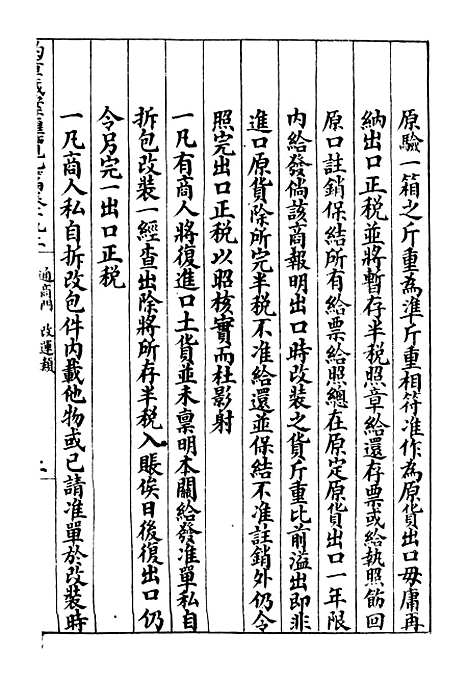 原驗一箱之斤重為準斤重相符准作為原貨出口毋庸再
納出口正税並將暫存半税照章給還存票或給執照飭回
原口註銷保結所有給票給照總在原定原貨出口一年限
內給發倘該商報明出口時改裝之貨斤重比前溢出即非
進口原貨除所完半税不准給還並保結不准註銷外仍令
照完出口正税以昭核實而杜影射
一凡有商人將復進口土貨並未禀明本關給發准單私自
拆包改裝一經查出除將所存半税入賬俟日後復出口仍
令另完一出口正税
一凡商人私自拆改包件內載他物或已請准單於改裝時
通商門 改運類